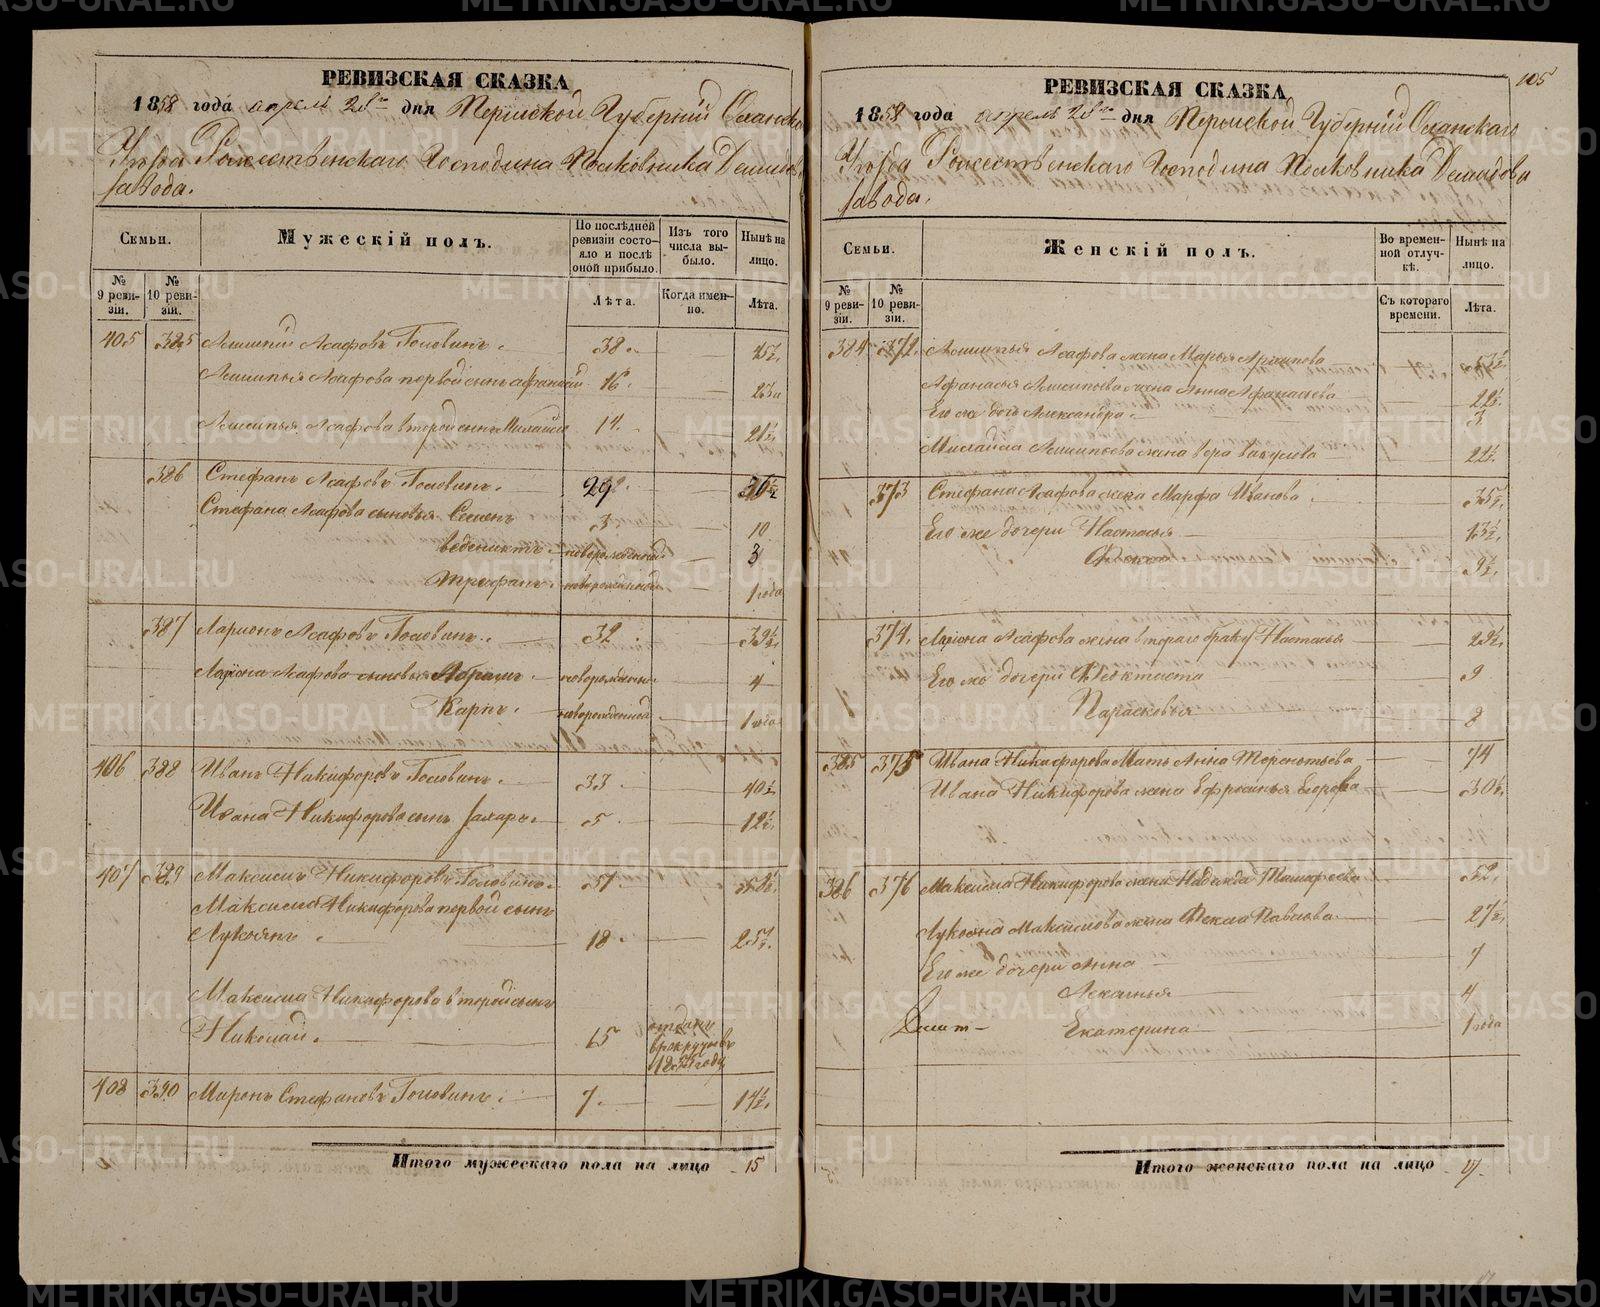 РЕВИЗСКАЯ СКАЗКА
1858 года апреля 28го дня Пермской Губернiи Оханска
Уѣзда Рожественскаго Господина Полковника Демидова
завода.
Семьи.
Мужескiй полъ.
По послѣдней ревизiи состояло и послѣ оной прибыло.
Изъ того числа выбыло.
Нынѣ на лицо.
№ 9 ревизiи.
№ 10 ревизiи.
Лѣта.
Когда именно.
Лѣта.
405 385 Асафовъ Головинъ. 38. 45½
Асафова первой сынъ Афанасiй 16. 23½
Асафова второй сынъ Михайло 14. 21½
386 Стефанъ Асафовъ Головинъ. 29. 36½
Стефана Асафова сыновья Семенъ 3 10
веденихтъ новорожденный 3
Трифанъ. новорожденный 1 года
387 Ларионъ Асафовъ Головинъ. 32. 39½
Лариона Асафова сыновья Абрамъ новорожденный 4
Карпъ. новорожденной 1 года
406 388 Иванъ Никифоровъ Головинъ. 33. 40½
Ивана Никифорова сынъ Захаръ. 5. 12½
407 389 Максимъ Никифоровъ Головинъ. 51. 58½
Максима Никифорова первой сынъ
Лукоянъ. 18. 25½
Максима Никифорова второй сынъ
Николай. 15 отданъ в рекруты въ году
408 390 Миронъ Стефановъ Головинъ. 7. 14½
Итого мужескаго пола на лицо 15
105
РЕВИЗСКАЯ СКАЗКА
1858 года апреля 28го дня Пермской Губернiи Оханскаго
Уѣзда Рожественскаго Господина Полковника Демидова
завода.
Семьи.
Женскiй полъ.
Во временной отлучкѣ.
Нынѣ на лицо.
№ 9 ревизiи.
№ 10 ревизiи.
Съ котораго времени.
Лѣта.
384 372. Асафова жена Марья Архипова
Афанасья жена Анна Афанасьева 22½
Его же дочь Александра. 3
Михайла жена вера вакулова 21½
373 Стефана Асафова жена Марфа Иванова 35½
Его же дочери Настасья 13½
Фекла 9½
374. Лариона Асафова жена втораго браку Настасья 29½
Его же дочери Феоктиста 9
Парасковья 8
385 375 Ивана Никифорова Мать Анна Терентьева 74
Ивана Никифорова жена Ефросинья Егорова 30½
386 376 Максима Никифорова жена Надежда 52
Лукояна Максимова жена Фекла Павлова 27½
Его же дочери Анна 7
4
Екатерина 1 года
Итого женскаго пола на лицо 17.
METRIKI.GASO-URAL.RU